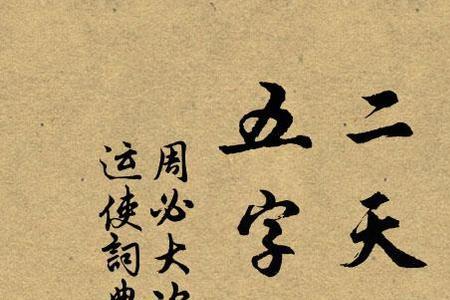 二天
五字
周必大次
运使詞典